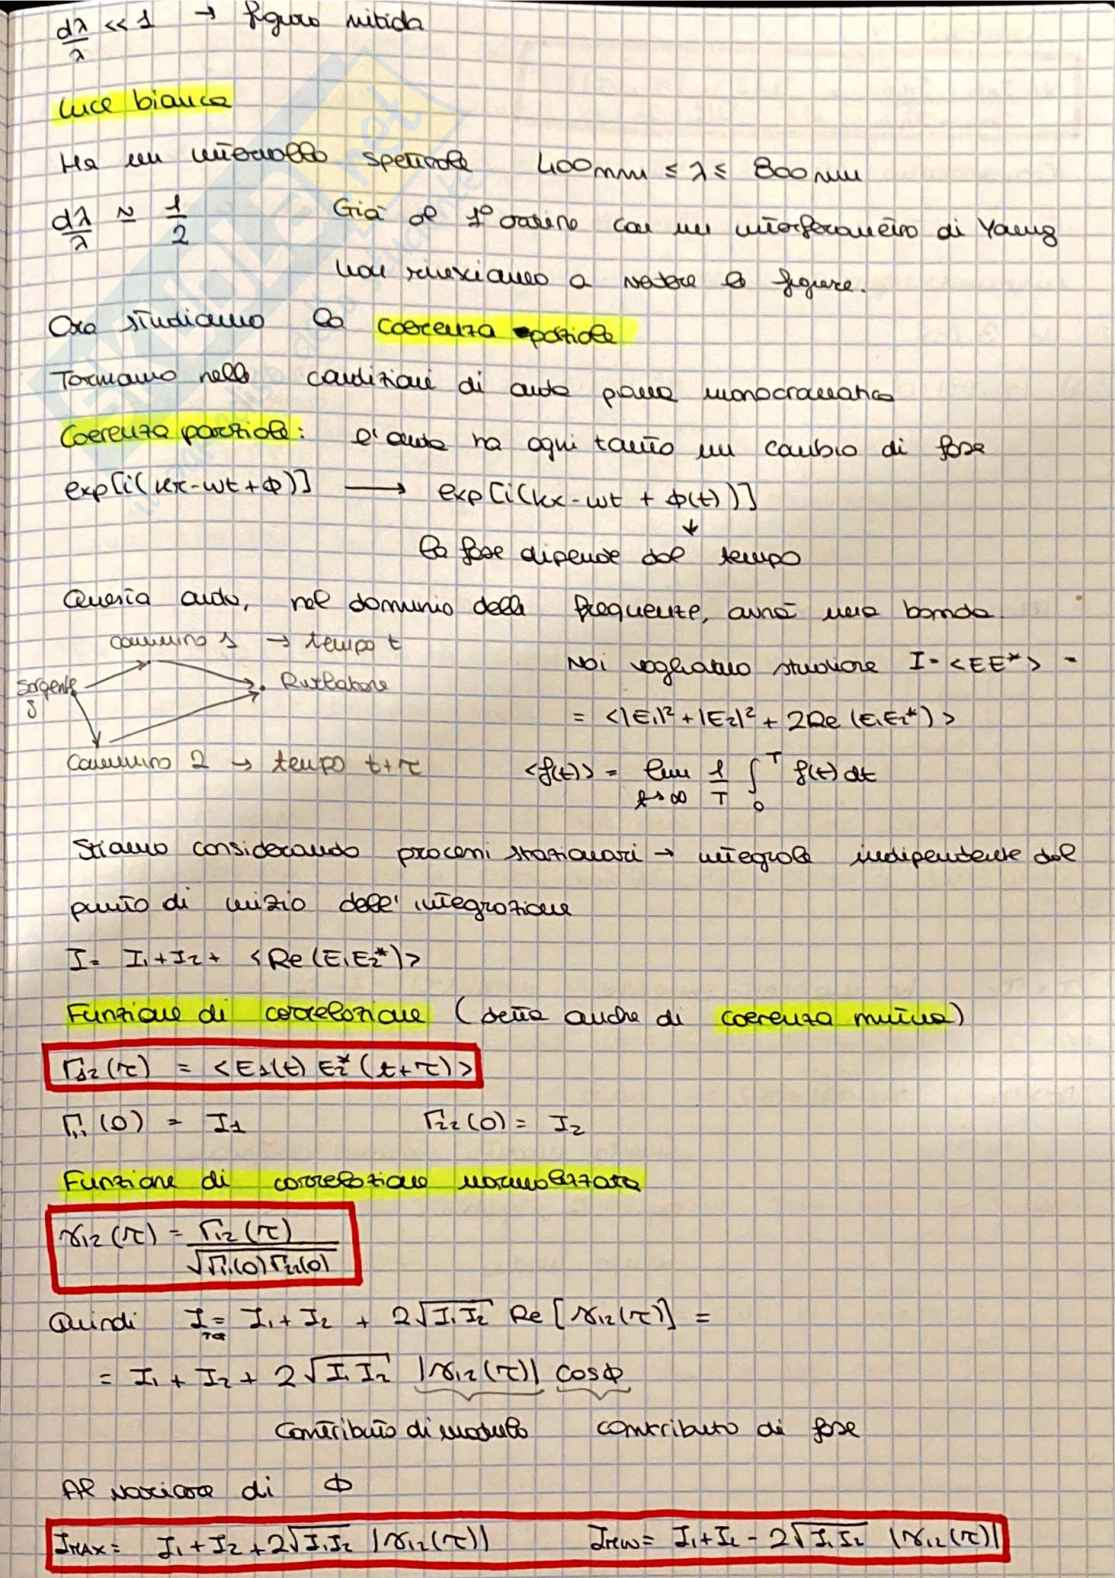 dλ/λ << 1 → figura nitida
Luce bianca
Ha un intervallo spettrale 400nm ≤ λ ≤ 800nm
dλ/λ ≈ 1/2 Già al 1° ordine con un interferometro di Young
non riusciamo a vedere la figura.
Ora studiamo la coerenza parziale
Torniamo nelle condizioni di onda piana monocromatica
Coerenza parziale: l'onda ha ogni tanto un cambio di fase
exp[i(kx-wt+Φ)] → exp[i(kx-wt + Φ(t))]
↓
la fase dipende dal tempo
Questa onda, nel dominio delle frequenze, avrà una banda.
cammino 1 → tempo t
Noi vogliamo studiare I = <EE*> =
Sorgente S
Rivelatore
= <|E₁|² + |E₂|² + 2Re (E₁E₂*)>
Cammino 2 → tempo t+τ
<f(t)> = lim t→∞ 1/T ∫₀ᵀ f(t) dt
Stiamo considerando processi stazionari → integrale indipendente dal
punto di inizio dell'integrazione
I = I₁+I₂ + <Re(E₁E₂*)>
Funzione di correlazione (detta anche di coerenza mutua)
Γ₁₂(τ) = <E₁(t) E₂*(t+τ)>
Γ₁₁(0) = I₁ Γ₂₂(0) = I₂
Funzione di correlazione normalizzata
γ₁₂(τ) = Γ₁₂(τ) / √Γ₁₁(0)Γ₂₂(0)
Quindi I = I₁ + I₂ + 2√I₁I₂ Re[γ₁₂(τ)] =
= I₁ + I₂ + 2√I₁I₂ |γ₁₂(τ)| cosΦ
Contributo di modulo contributo di fase
Al variare di Φ
IMAX = I₁ + I₂ + 2√I₁I₂ |γ₁₂(τ)| IMIN = I₁+I₂ - 2√I₁I₂ |γ₁₂(τ)|